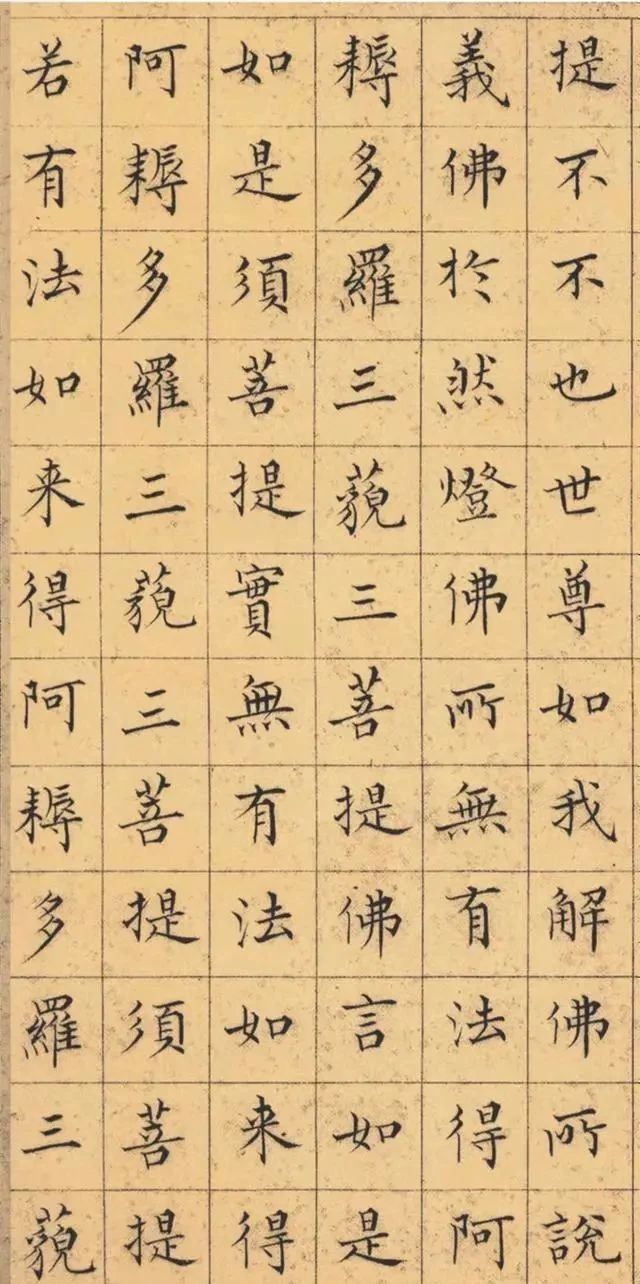 提不不也世尊如我解佛所說
義佛於然燈佛所無有法得阿
耨多羅三藐三菩提佛言如是
如是須菩提實無有法如来得
阿耨多羅三藐三菩提須菩提
若有法如来得阿耨多羅三藐